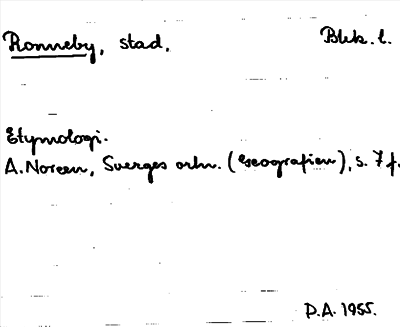 Ronneby, stad. Blek. l.
Etymologi.
A. Noreen, Sverges ortn. (Geografien), s. 7 f.
P.A. 1955.